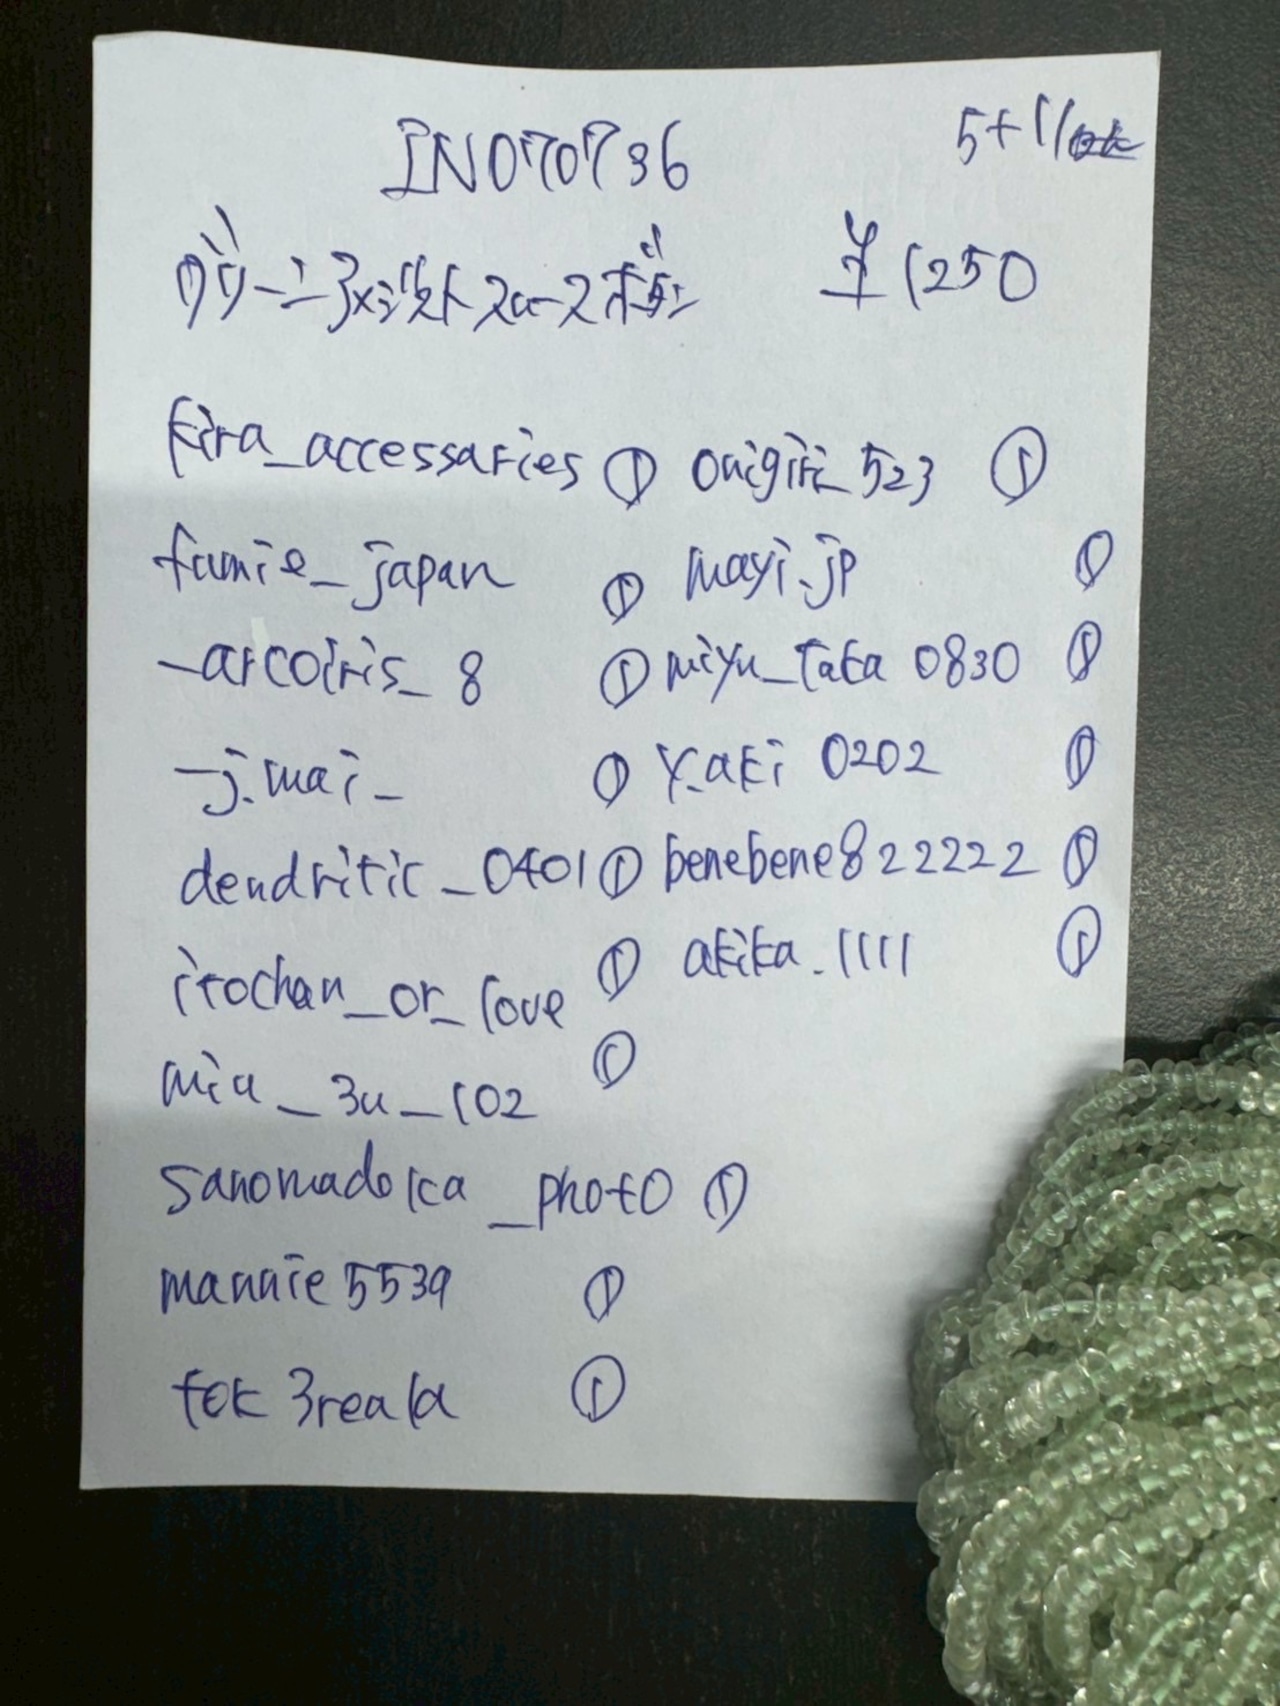 IN070736
5+11
グリーンアメジストスムースボタン ¥1250
kira_accessaries ① onigiri_523 ①
fumie_japan ① mayi.jp ①
_arcoiris_8 ① miyu_taka 0830 ①
_j.mai_ ① y.aki 0202 ①
dendritic_0401 ① benebene822222 ①
itochan_or_love ① akika.1111 ①
miu_3u_102 ①
sanomadoka_photo ①
mannie5539 ①
tok3reala ①